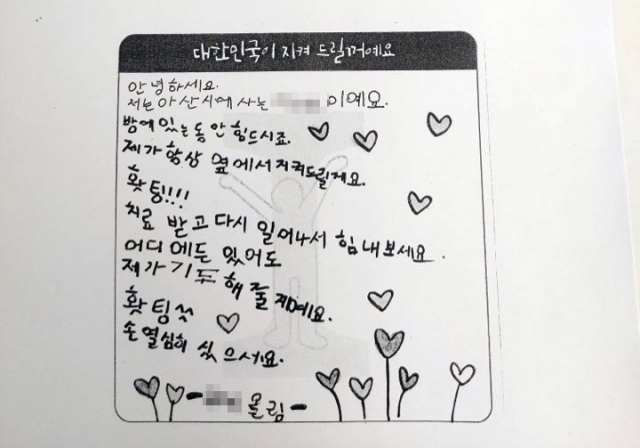 대한민국이 지켜 드릴꺼예요
안녕하세요.
저는 아산시에 사는 이예요.
방에 있는 동안 힘드시죠.
제가 항상 옆에서 지켜드릴게요.
홧팅!!!
치료 받고 다시 일어나서 힘내보세요.
어디에든 있어도
제가 기도 해 줄게예요.
홧팅
손 열심히 씼으서요.
- 올림 -